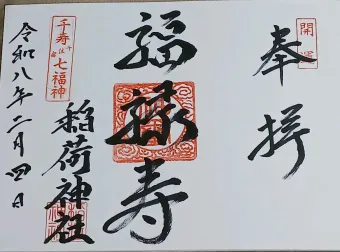 開運
奉拝
福禄寿
千寿
七福神
稲荷神社
令和八年二月四日